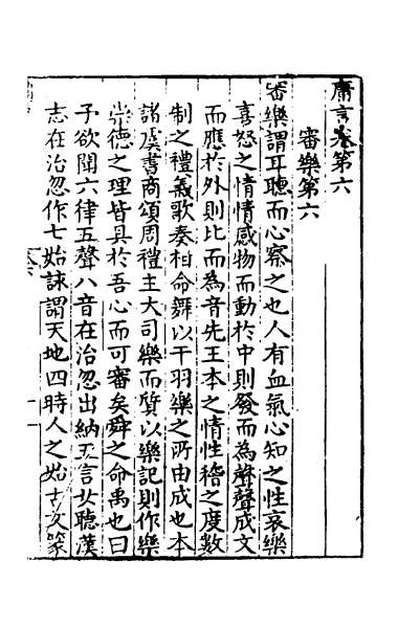 庸言卷第六
審樂第六
審樂謂耳聽而心察之也人有血氣心知之性哀樂
喜怒之情情感物而動於中則發而為聲聲成文
而應於外則比而為音先王本之情性稽之度數
制之禮義歌奏相命舞以干羽樂之所由成也本
諸虞書商頌周禮主大司樂而質以樂記則作樂
崇德之理皆具於吾心而可審矣舜之命禹也曰
予欲聞六律五聲八音在治忽出納五言女聽漢
志在治忽作七始詠謂天地四時人之始古文篆